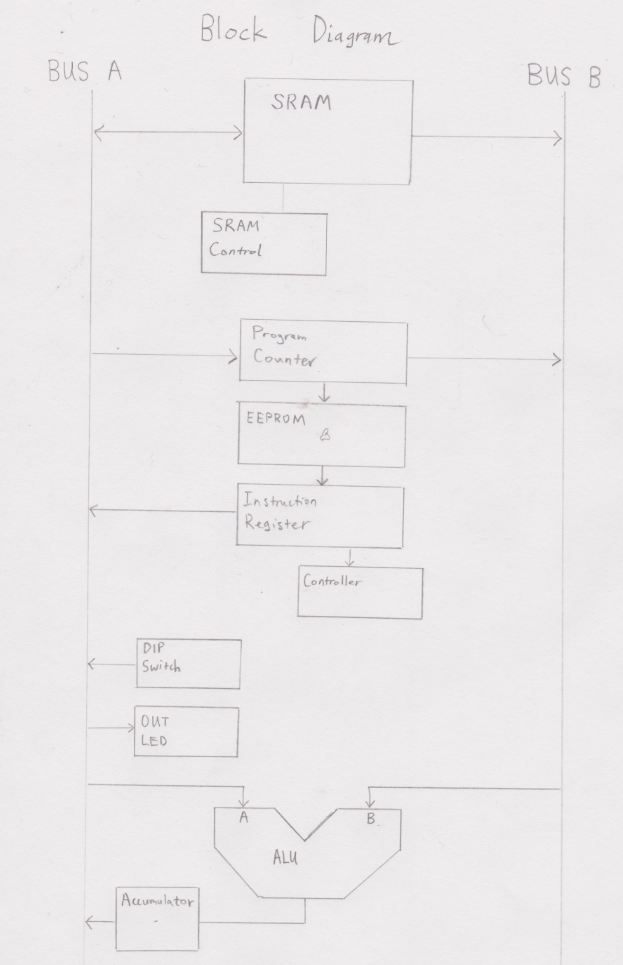 Block Diagram
BUS A
BUS B
SRAM
SRAM
Control
Program
Counter
EEPROM
Instruction
Register
Controller
DIP
Switch
OUT
LED
A
B
ALU
Accumulator